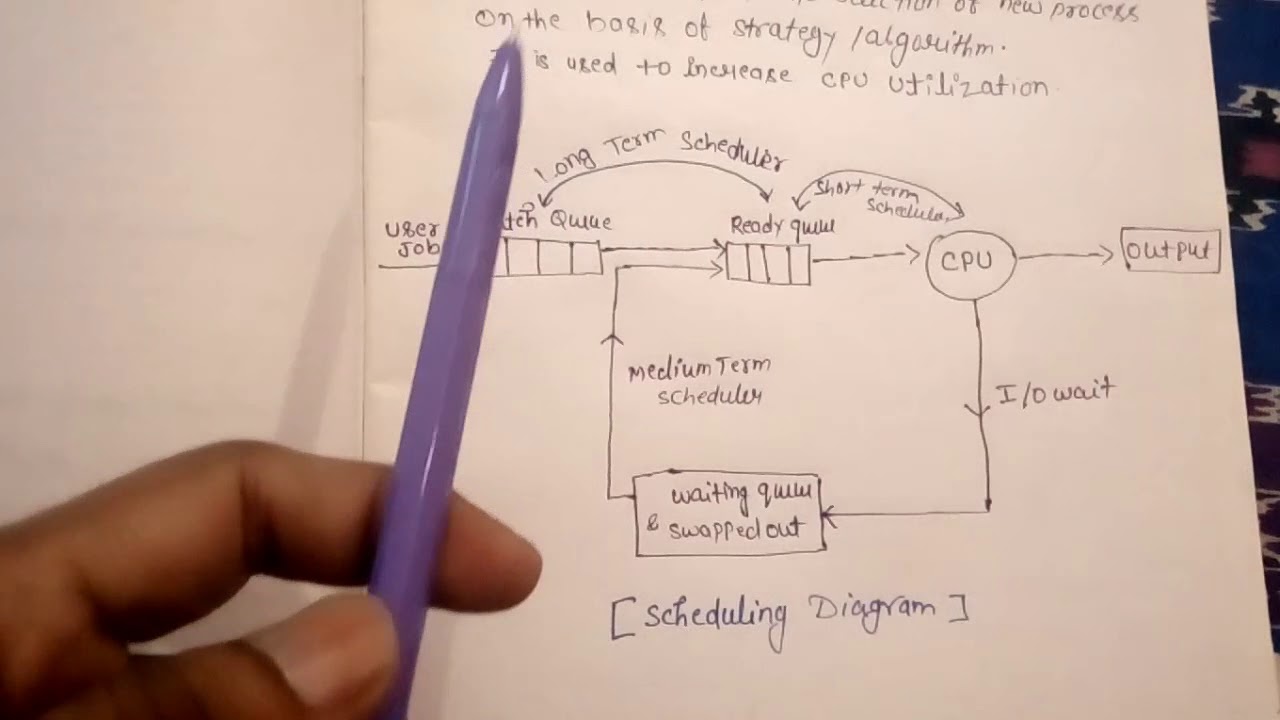 of new process
On the basis of strategy /algorithm.
is used to increase CPU utilization.
Long Term Scheduler
short term
scheduler
Queue
Ready queue
user
Job
CPU
output
Medium Term
scheduler
I/O wait
waiting queue
& swapped out
[ Scheduling Diagram ]